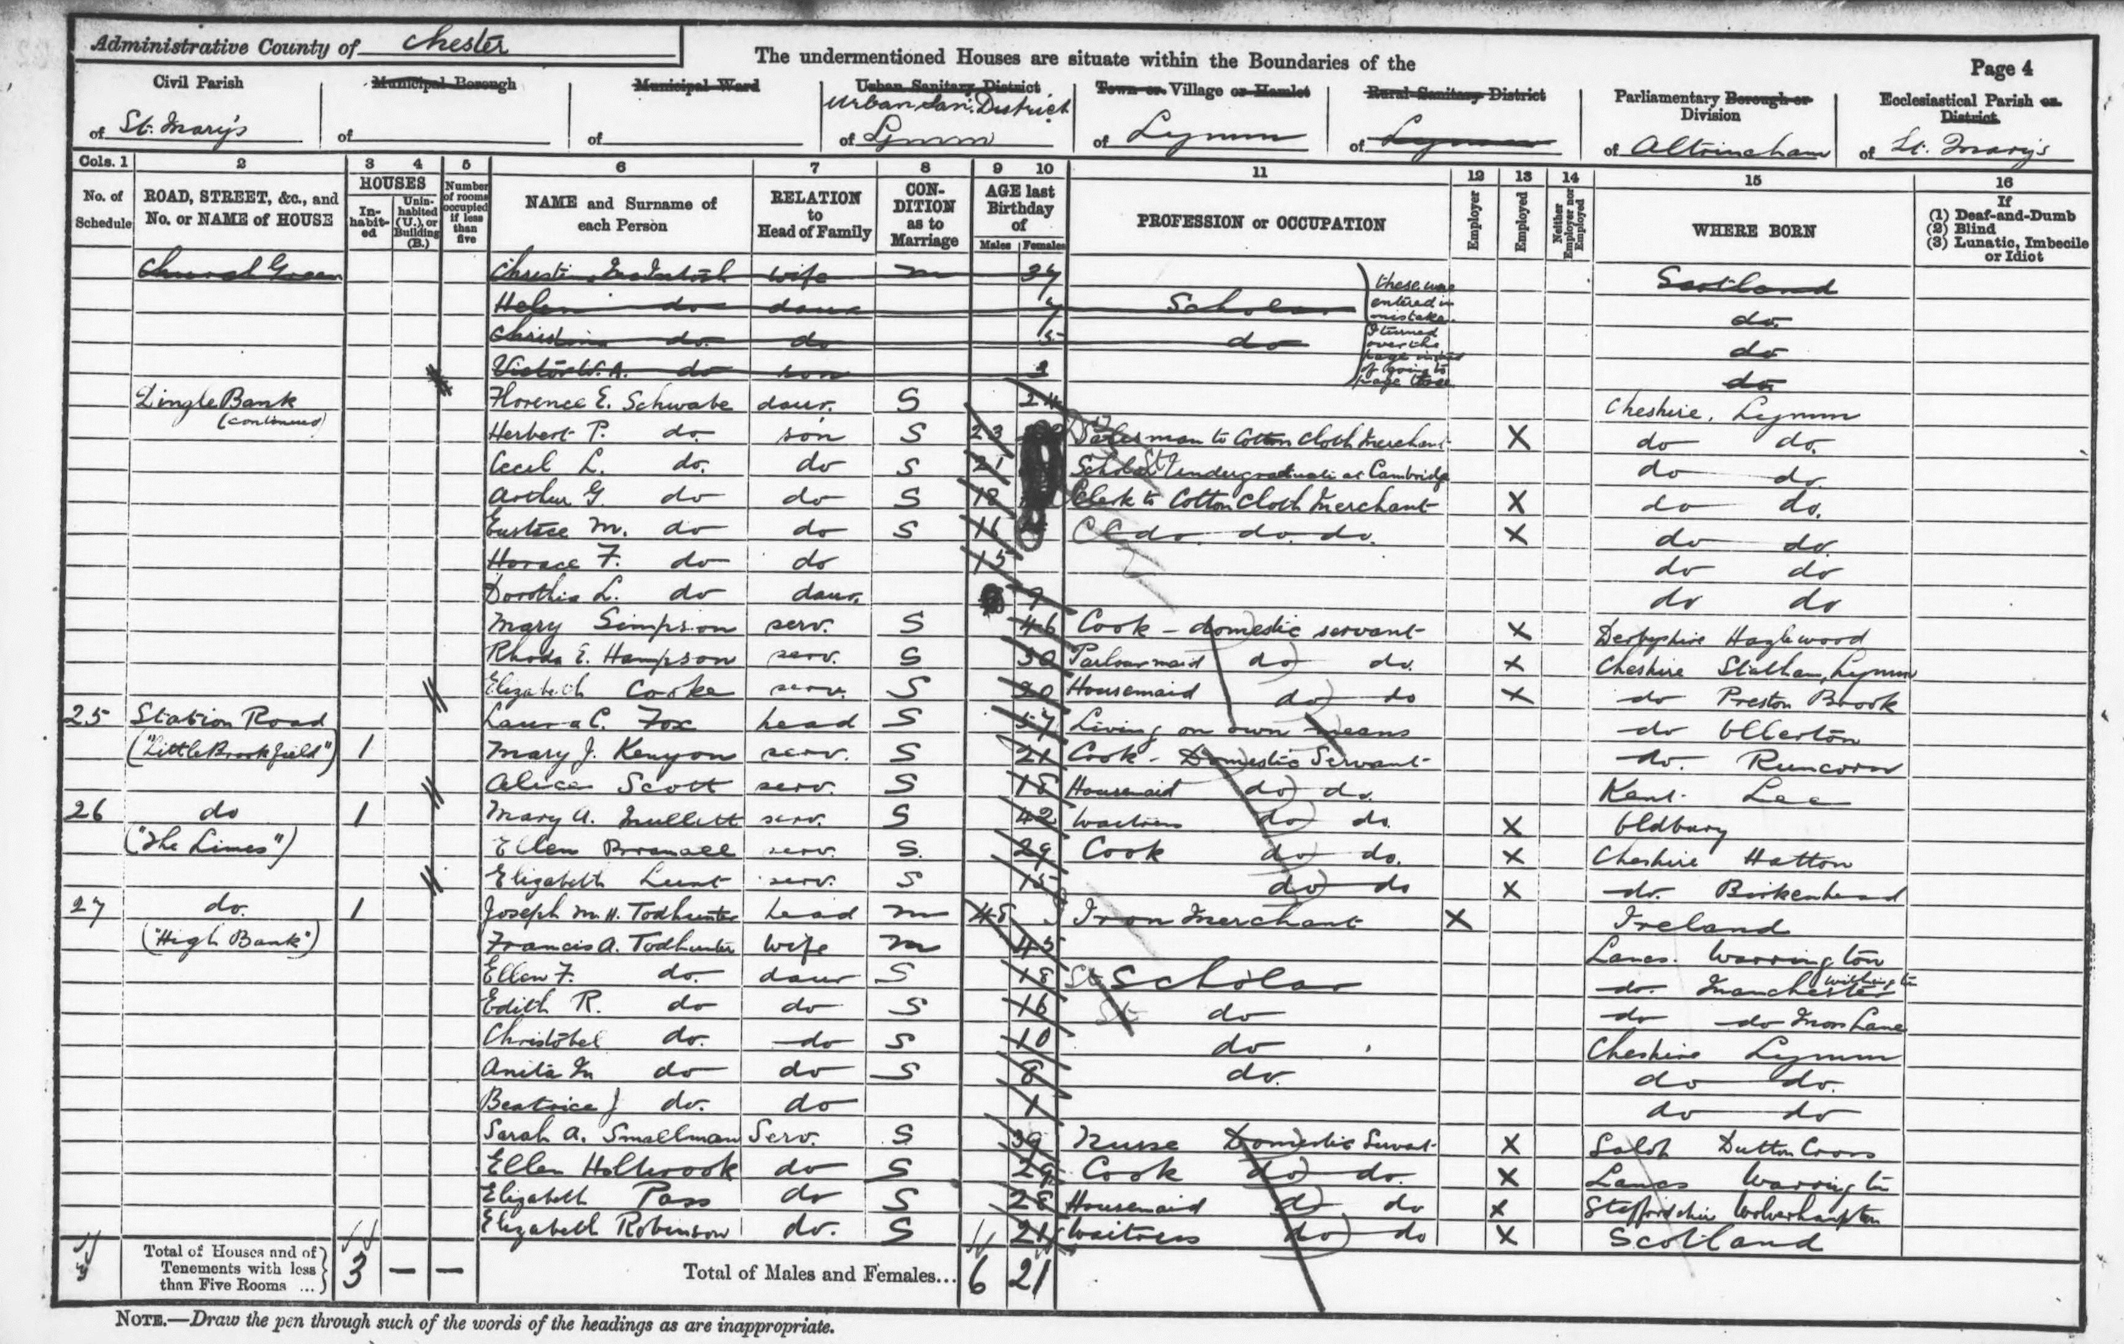 Administrative County of Chester
The undermentioned Houses are situate within the Boundaries of the
Page 4
Civil Parish Municipal Borough Municipal Ward Urban Sanitary District Town or Village or Hamlet Rural Sanitary District Parliamentary Borough or Division Ecclesiastical Parish or District
Urban San. District
of St. Mary's of of of Lymm of Lymm of Lymm of Altrincham of St. Mary's
Cols. 1 2 3 4 5 6 7 8 9 10 11 12 13 14 15 16
No. of Schedule ROAD, STREET, &c., and No. or NAME of HOUSE HOUSES Inhabited Uninhabited (U.), or Building (B.) Number of rooms occupied if less than five NAME and Surname of each Person RELATION to Head of Family CONDITION as to Marriage AGE last Birthday of Males Females PROFESSION or OCCUPATION Employer Employed Neither Employer nor Employed WHERE BORN If (1) Deaf-and-Dumb (2) Blind (3) Lunatic, Imbecile or Idiot
Church Green Christi McIntosh wife m 37 Scotland
Helen do daur 7 Scholar do.
Christina do. do 5 do do
Victor W. A. do son 3 do.
these were entered in mistake. I turned over the page instead of going to page three
Dingle Bank (continued) Florence E. Schwabe daur. S 24 Cheshire, Lymm
Herbert P. do. son S 23 Salesman to Cotton Cloth Merchant X do do.
Cecil L. do. do S 21 Scholar Undergraduate at Cambridge do do.
Arthur G. do do S 18 Clerk to Cotton Cloth Merchant X do do.
Eustace M. do do S 16 Cl do. do. do. X do do.
Horace F. do do 15 do do
Dorothea L. do daur. 9 do do
Mary Simpson serv. S 46 Cook - domestic servant X Derbyshire Hazlewood
Rhoda E. Hampson serv. S 30 Parlourmaid do do. X Cheshire Statham, Lymm
Elizabeth Cooke serv. S 20 Housemaid do do X do Preston Brook
25 Station Road Laura C. Fox head S 57 Living on own means do Ollerton
("Little Brookfield") 1 Mary J. Kenyon serv. S 21 Cook - Domestic Servant do. Runcorn
Alice Scott serv. S 18 Housemaid do do. Kent. Lee
26 do 1 Mary A. Mullett serv. S 42 Waitress do do. X Oldbury
("The Limes") Ellen serv. S. 29 Cook do do. X Cheshire Hatton
Elizabeth Lunt serv. S 15 do do X do. Birkenhead
27 do. 1 Joseph M. H. Todhunter head m 48 Iron Merchant X Ireland
("High Bank") Francis A. Todhunter wife m 45 Lancs. Warrington
Ellen F. do. daur S 18 Scholar do. Manchester Withington
Edith R. do do S 16 do do do Moss Lane
Christobel do. do S 10 do Cheshire Lymm
Anita M do do S 8 do. do do.
Beatrice J do. do 1 do do
Sarah A. Smallman Serv. S 39 Nurse Domestic Servat X Salop Dutton
Ellen Holbrook do S 29 Cook do do. X Lancs Warrington
Elizabeth Pass do S 28 Housemaid do do X Staffordshire Wolverhampton
Elizabeth Robinson do. S 21 Waitress do do X Scotland
3 Total of Houses and of Tenements with less than Five Rooms ... 3 — — Total of Males and Females... 6 21
NOTE.—Draw the pen through such of the words of the headings as are inappropriate.